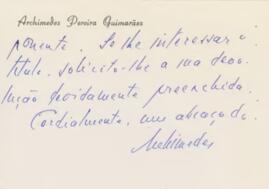 Archimedes Pereira Guimarães
ponente. Se lhe interessar o
título, solicito-lhe a sua devo
lução devidamente preenchida.
Cordialmente, um abraço do
Archimedes